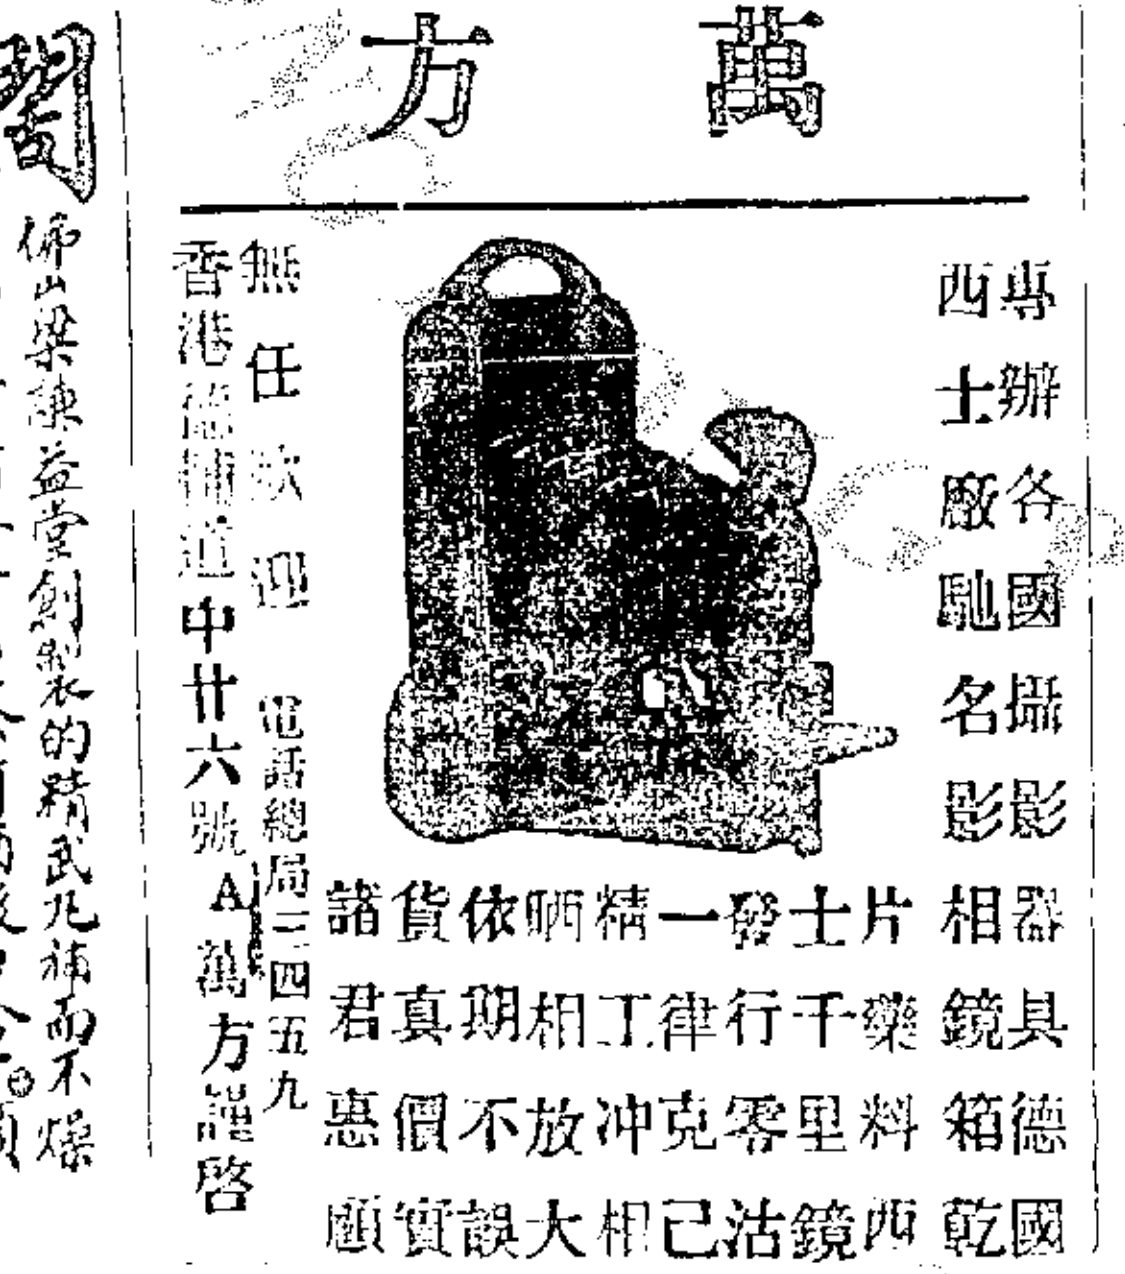 萬方
專辦各國攝影器具德國
西士廠馳名影相鏡箱乾
片藥料西
士千里鏡
發行零沽
一律克己
精工冲相
晒相放大
依期不誤
貨真價實
諸君惠顧
無任欢迎 電話總局三四五九
香港德輔道中廿六號A萬方謹啓
佛山梁益堂創製的精武丸補而不燥